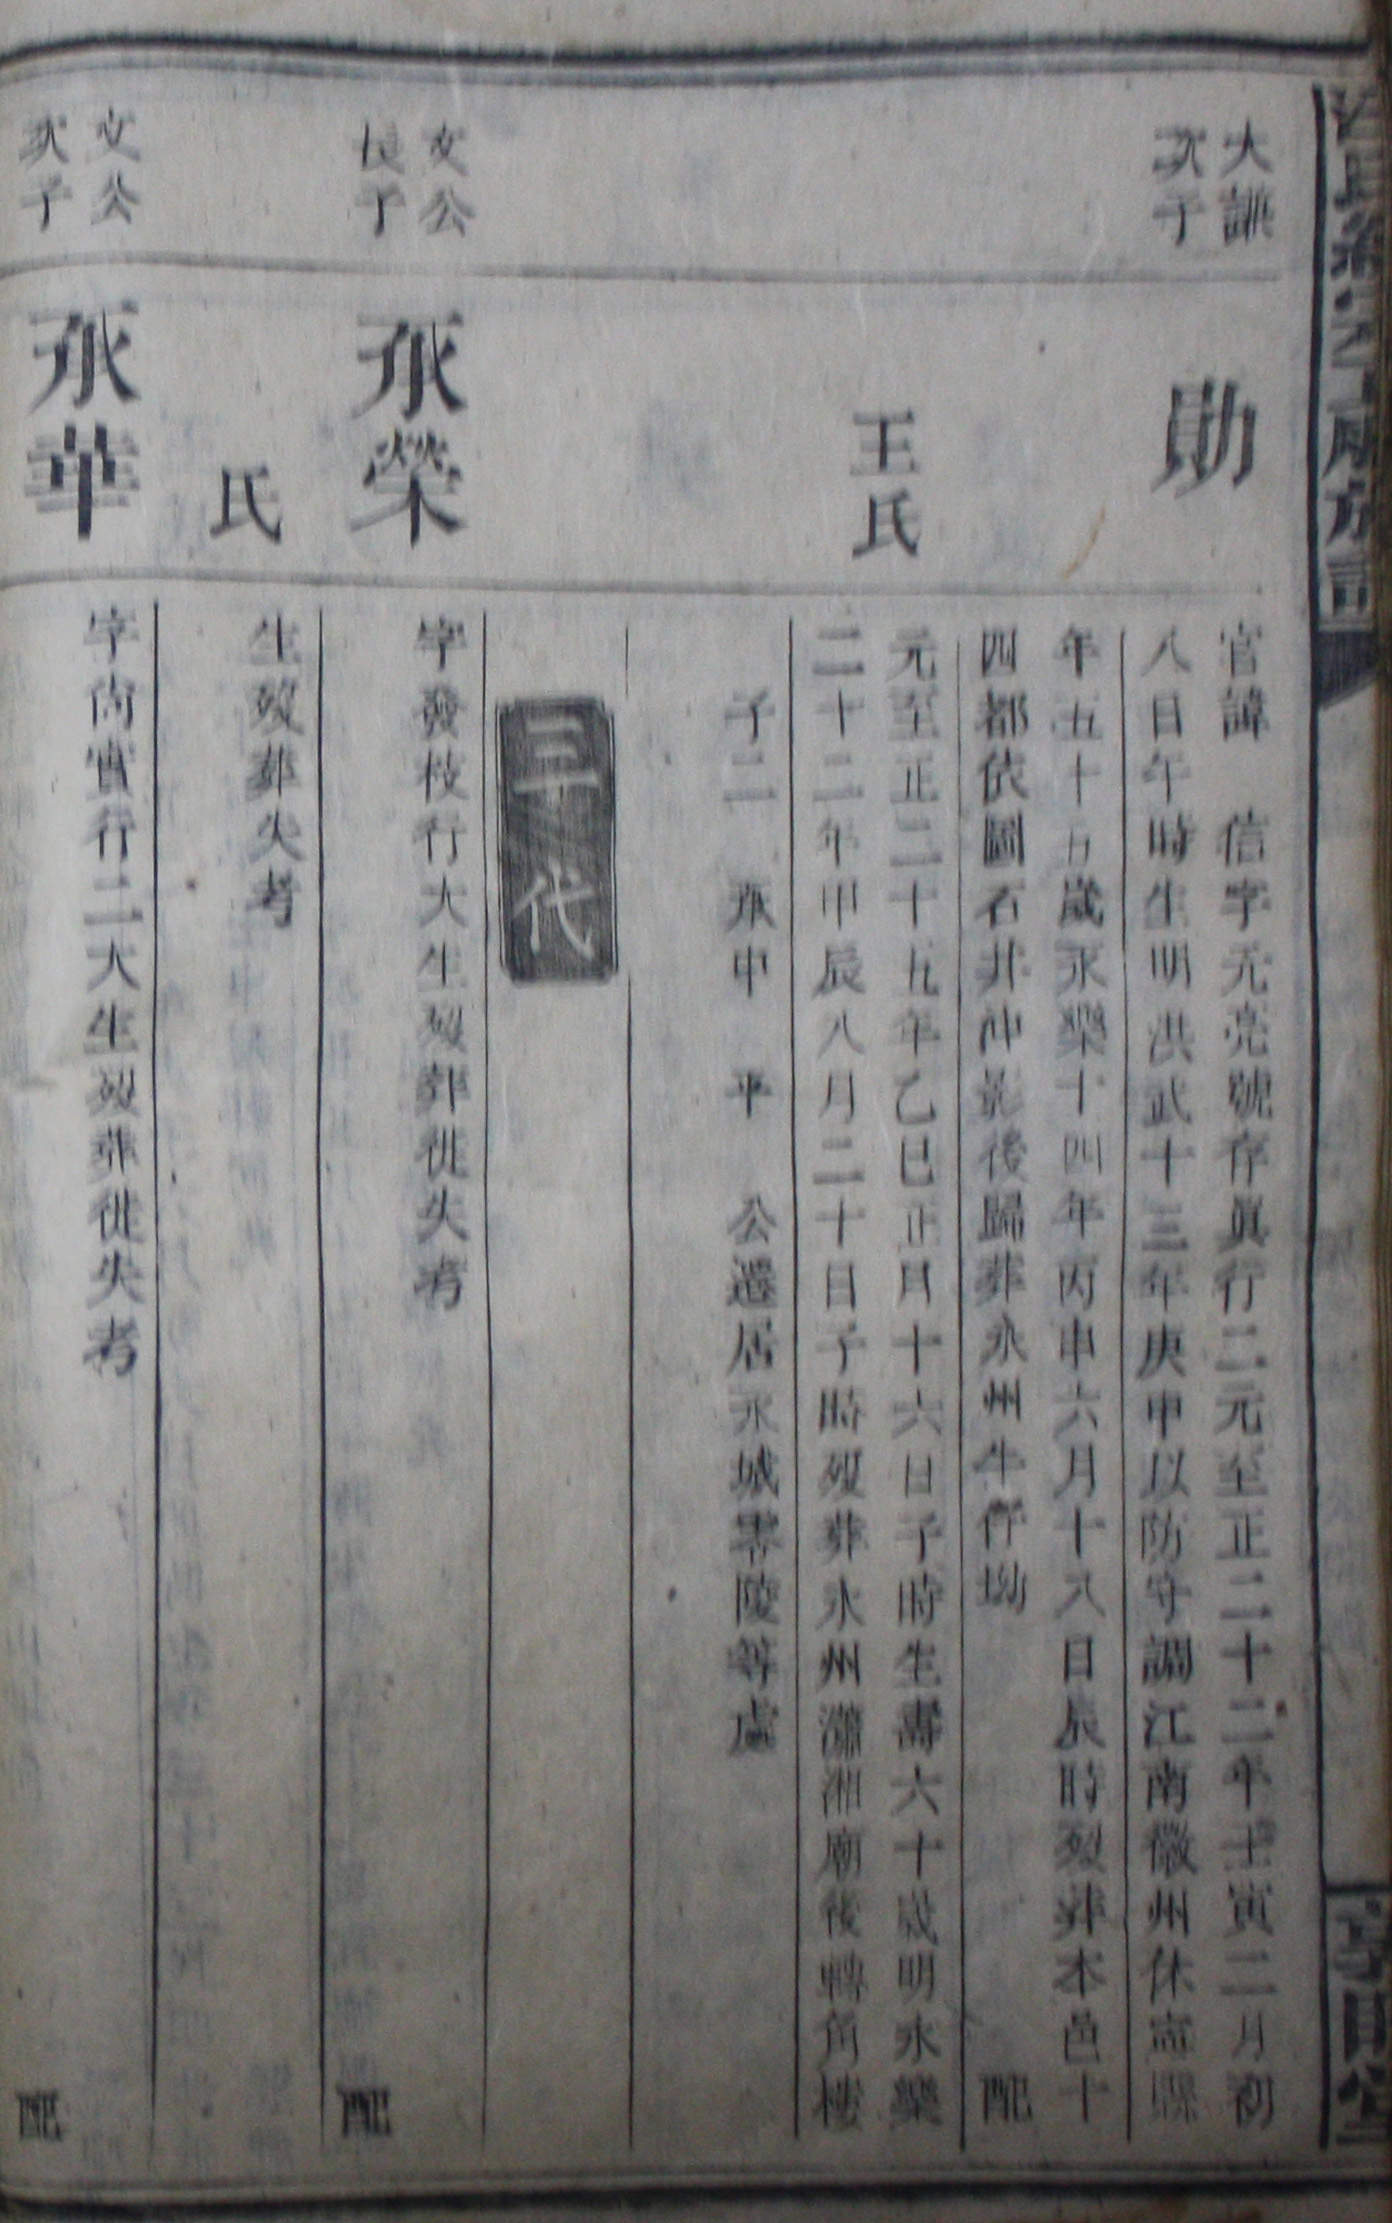 大謙
次子
勛
官諱　信字元亮號存眞行二元至正二十二年壬寅二月初
八日午時生明洪武十三年庚申以防守調江南徽州休寗縣
年五十五歲永樂十四年丙申六月十八日辰時歿葬本邑十
四都依圖石井冲影後歸葬永州牛行坳　配
王氏
元至正二十五年乙巳正月十六日子時生壽六十歲明永樂
二十二年甲辰八月二十日子時歿葬永州瀟湘廟後轉角樓
子二　承中　平　公遷居永城零陵等處
三代
文公
長子
承榮
字發枝行大生歿葬徙失考　配
氏
生歿葬失考
文公
次子
承華
字尚實行二大生歿葬徙失考　配